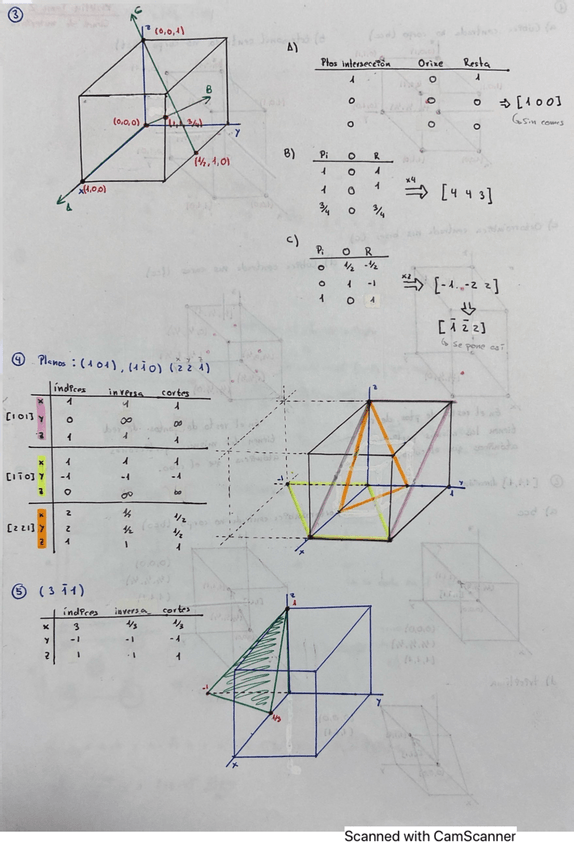 ③
C
z (0,0,1)
B
(0,0,0)
(1, 1, 3/4)
y
(1/2, 1, 0)
x (1,0,0)
A
A)
Ptos intersección Orixe Resta
1 0 1
0 0 0 ⇒ [1 0 0]
0 0 0 ↳ sin comas
B)
Pi O R
1 0 1
1 0 1 x4 ⇒ [4 4 3]
3/4 0 3/4
C)
Pi O R
0 1/2 -1/2
0 1 -1 x2 ⇒ [-1 -2 2]
1 0 1
[1̄ 2̄ 2]
↳ se pone así
④ Planos: (1 0 1), (1 1̄ 0) (2 2 1)
x y z
índices inversa cortes
[101] x 1 1 1
y 0 ∞ ∞
z 1 1 1
[11̄0] x 1 1 1
y -1 -1 -1
z 0 ∞ ∞
[221] x 2 1/2 1/2
y 2 1/2 1/2
z 1 1 1
z
-1
y
1
x
⑤ (3 1̄ 1)
índices inversa cortes
x 3 1/3 1/3
y -1 -1 -1
z 1 1 1
z
1
-1
y
1/3
x
Scanned with CamScanner